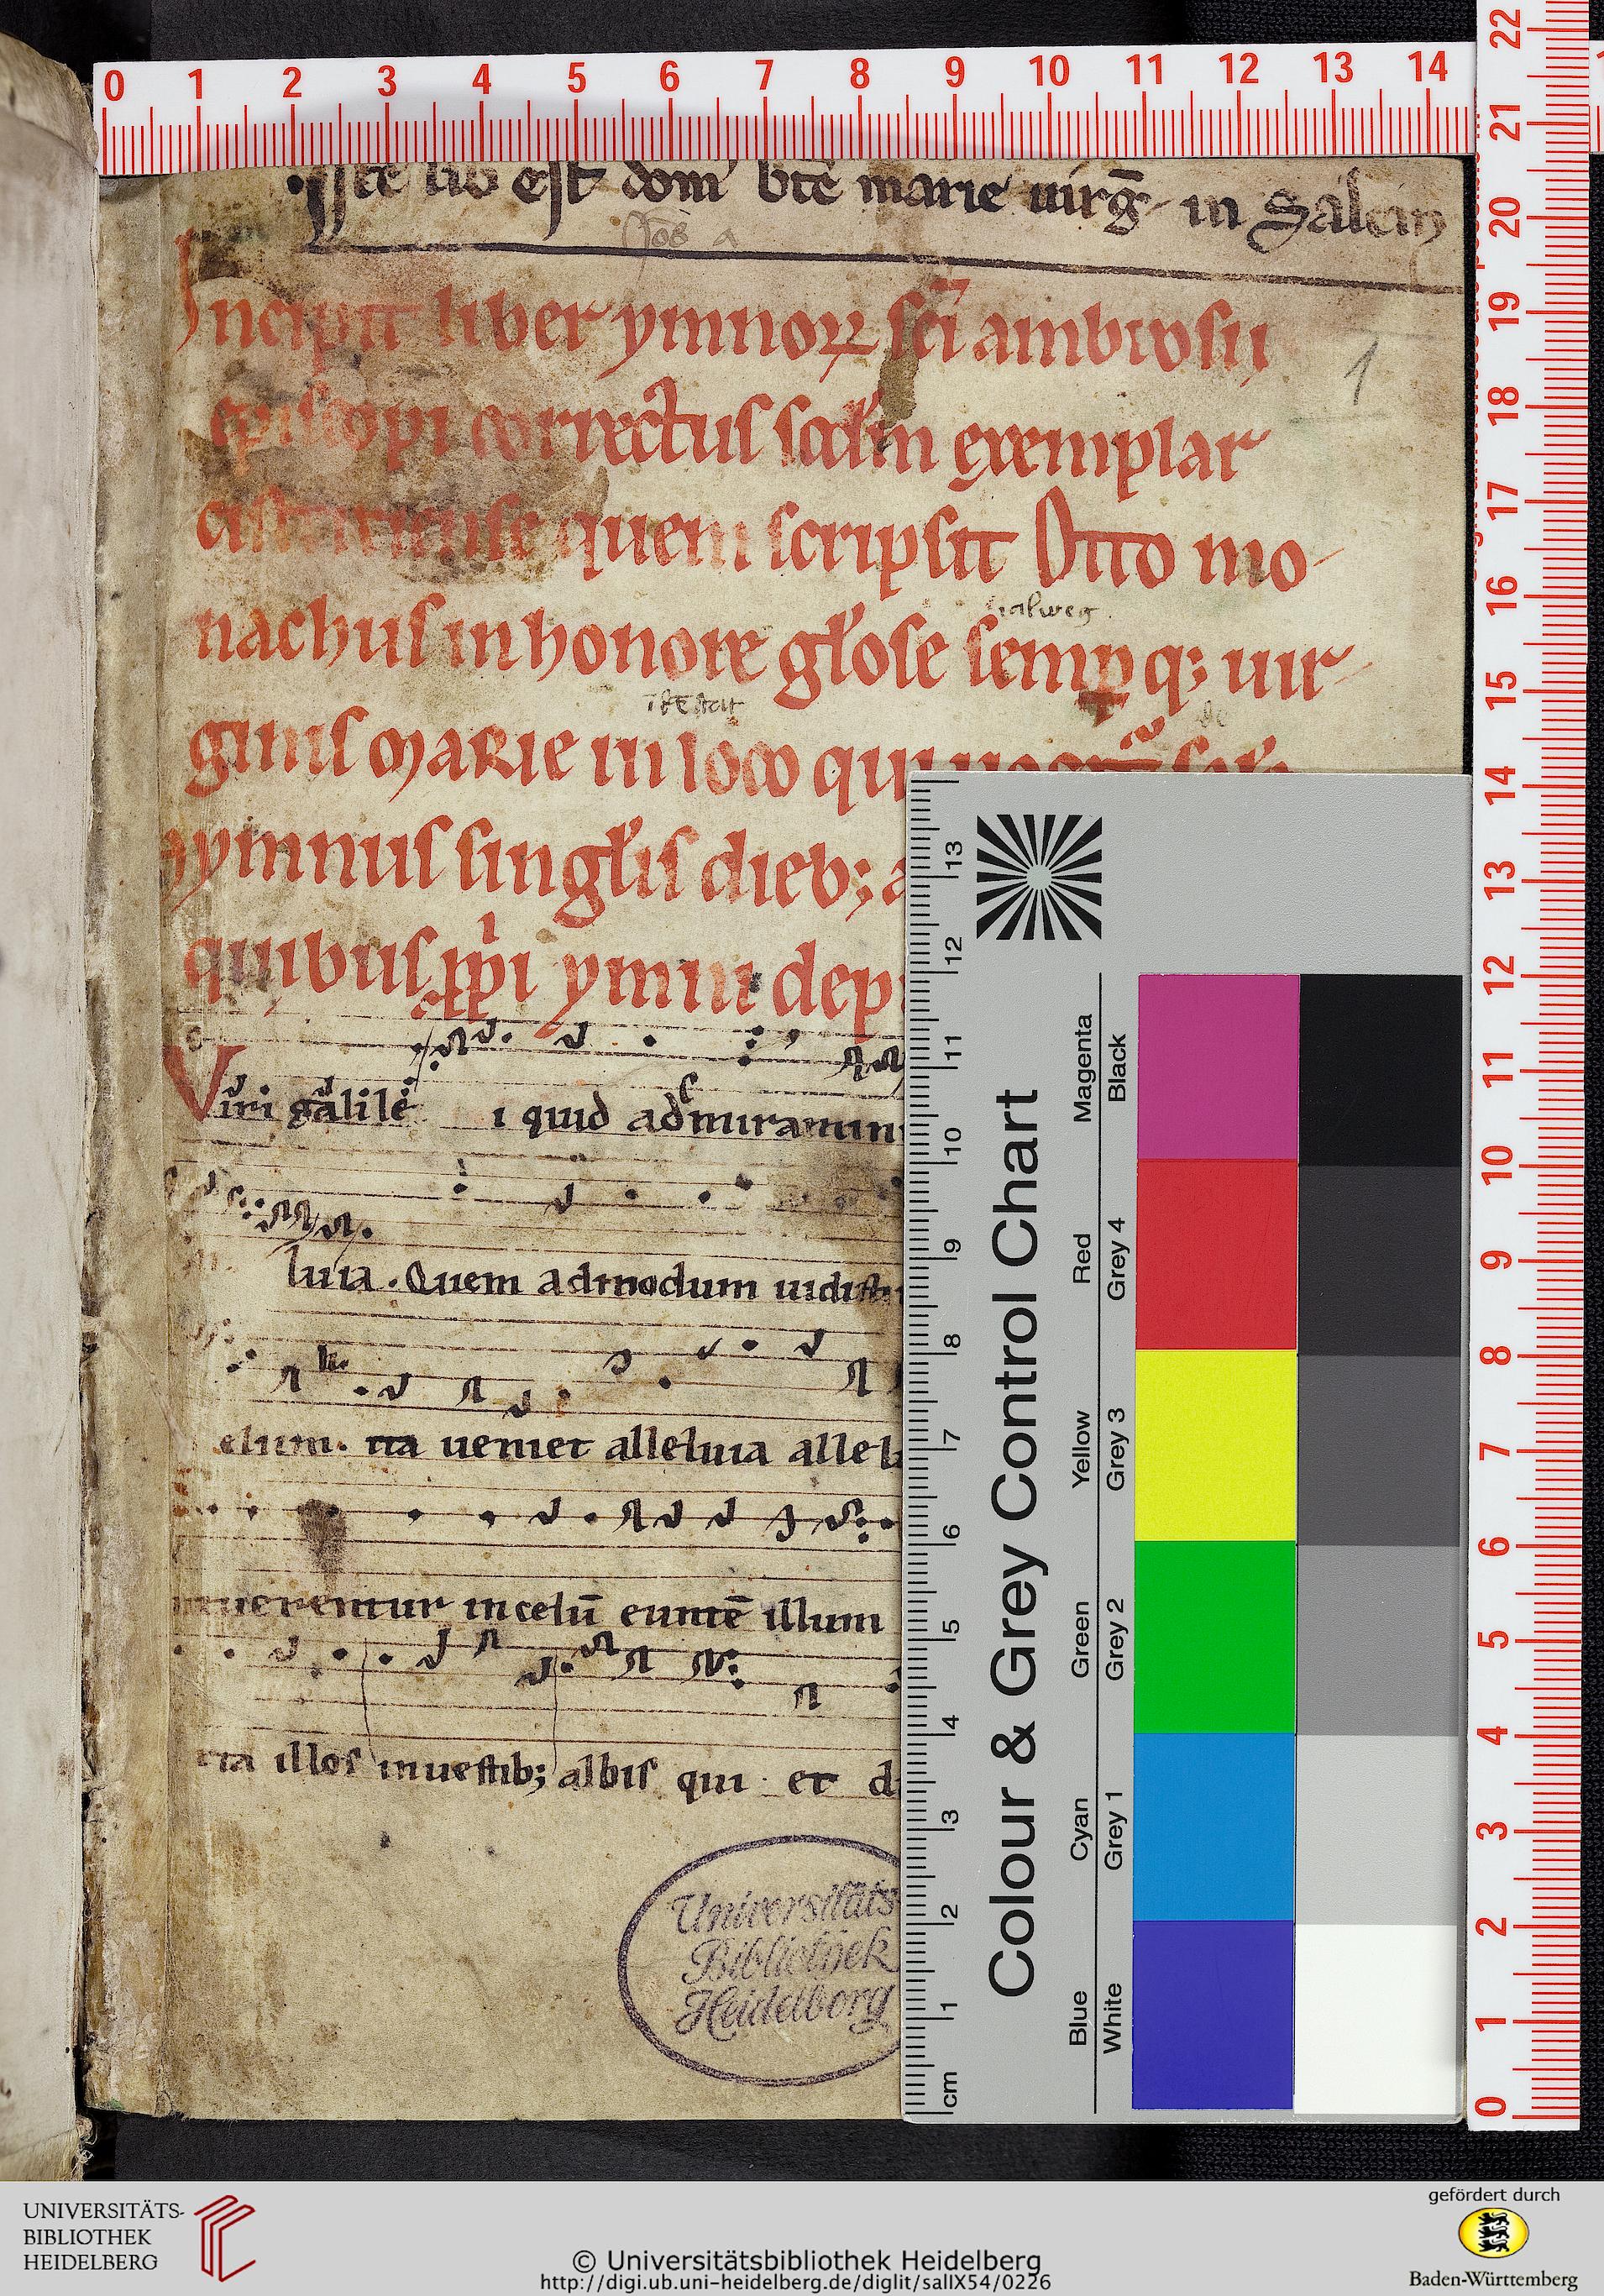 0 1 2 3 4 5 6 7 8 9 10 11 12 13 14
22 21 20 19 18 17 16 15 14 13 12 11 10 9 8 7 6 5 4 3 2 1 0
Iste lib est dom bte marie uirḡ in Salem
Incipit liber ymnoꝝ sc̄i ambrosii
1
episcopi correctus scdm exemplar
cisterciense quem scripsit Otto mo-
halweg
nachus in honore gl'ose semp q; uir-
ginis MARIE in loco qui
ymnus singl'is dieb;
quibus ymni dep
Viri galile i quid admiramini
luia . Quem admodum uidisti
elum . ita ueniet alleluia allel
intuerentur in celū euntē illum
ita illos in uestib; albis qui et d
Universitäts
Bibliothek
Heidelberg
Colour & Grey Control Chart
Blue Cyan Green Yellow Red Magenta
White Grey 1 Grey 2 Grey 3 Grey 4 Black
cm 1 2 3 4 5 6 7 8 9 10 11 12 13
UNIVERSITÄTS-
BIBLIOTHEK
HEIDELBERG
© Universitätsbibliothek Heidelberg
http://digi.ub.uni-heidelberg.de/diglit/salIX54/0226
gefördert durch
Baden-Württemberg